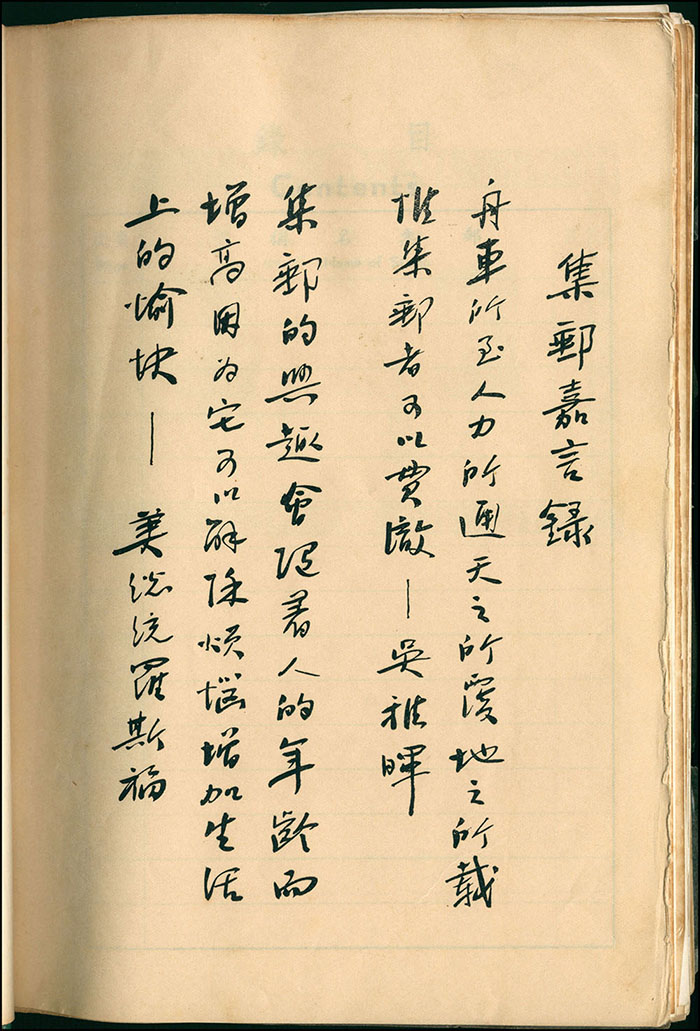 集郵嘉言錄
舟車所至人力所通天之所覆地之所載
惟集郵者可以貫澈—吳稚暉
集郵的興趣會隨着人的年齡而
增高因為它可以解除煩惱增加生活
上的愉快—美總統羅斯福
目 錄
Contents